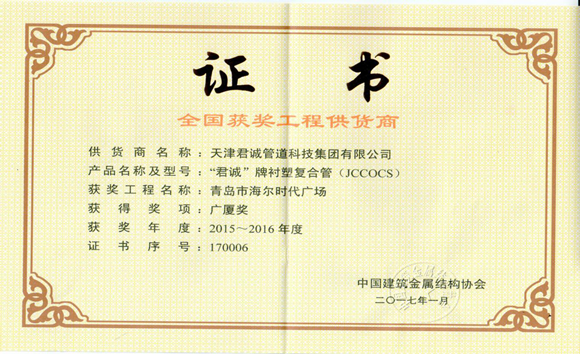 证书
全国获奖工程供货商
供货商名称：天津君诚管道科技集团有限公司
产品名称及型号：“君诚”牌衬塑复合管（JCCOCS）
获奖工程名称：青岛市海尔时代广场
获得奖项：广厦奖
获奖年度：2015～2016年度
证书序号：170006
中国建筑金属结构协会
二〇一七年一月